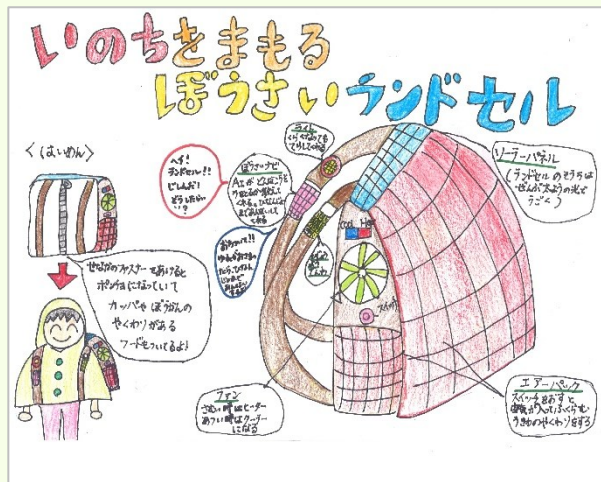 いのちをまもる
ぼうさいランドセル
<はいめん>
せなかのファスナーをあけると
ポンチョになっていて
カッパやぼうかんの
やくわりがある
フードもついてるよ！
ヘイ！
ランドセル！！
じしんだ！
どうしたらいい？
ぼうさいナビ
ライト
くらくなっても
てらしてくれる
おちついて！！
ソーラーパネル
(ランドセルのそうちは
ぜんぶ太ようの光で
うごく)
Cool Hot
スイッチ
ファン
さむい時はヒーター
あつい時はクーラー
になる
エアーパック
スイッチをおすと
空気が入ってふくらむ
うきわのやくわりをする